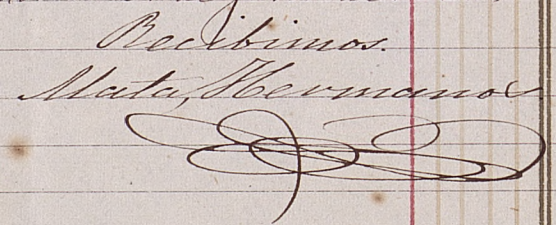 Recibimos.
Mata, Hermanos